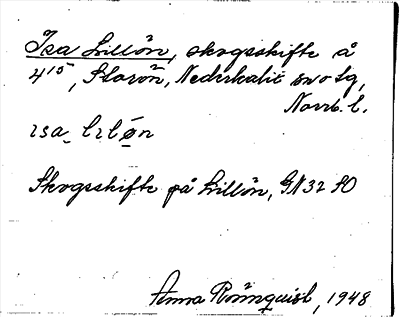 Isa Lillön, skogsskifte å
4¹⁵, Storön, Nederkalix snolg,
Norrb. l.
ısa lılön
Skogsskifte på Lillön, GN32 SO
Anna Rönnqvist, 1948